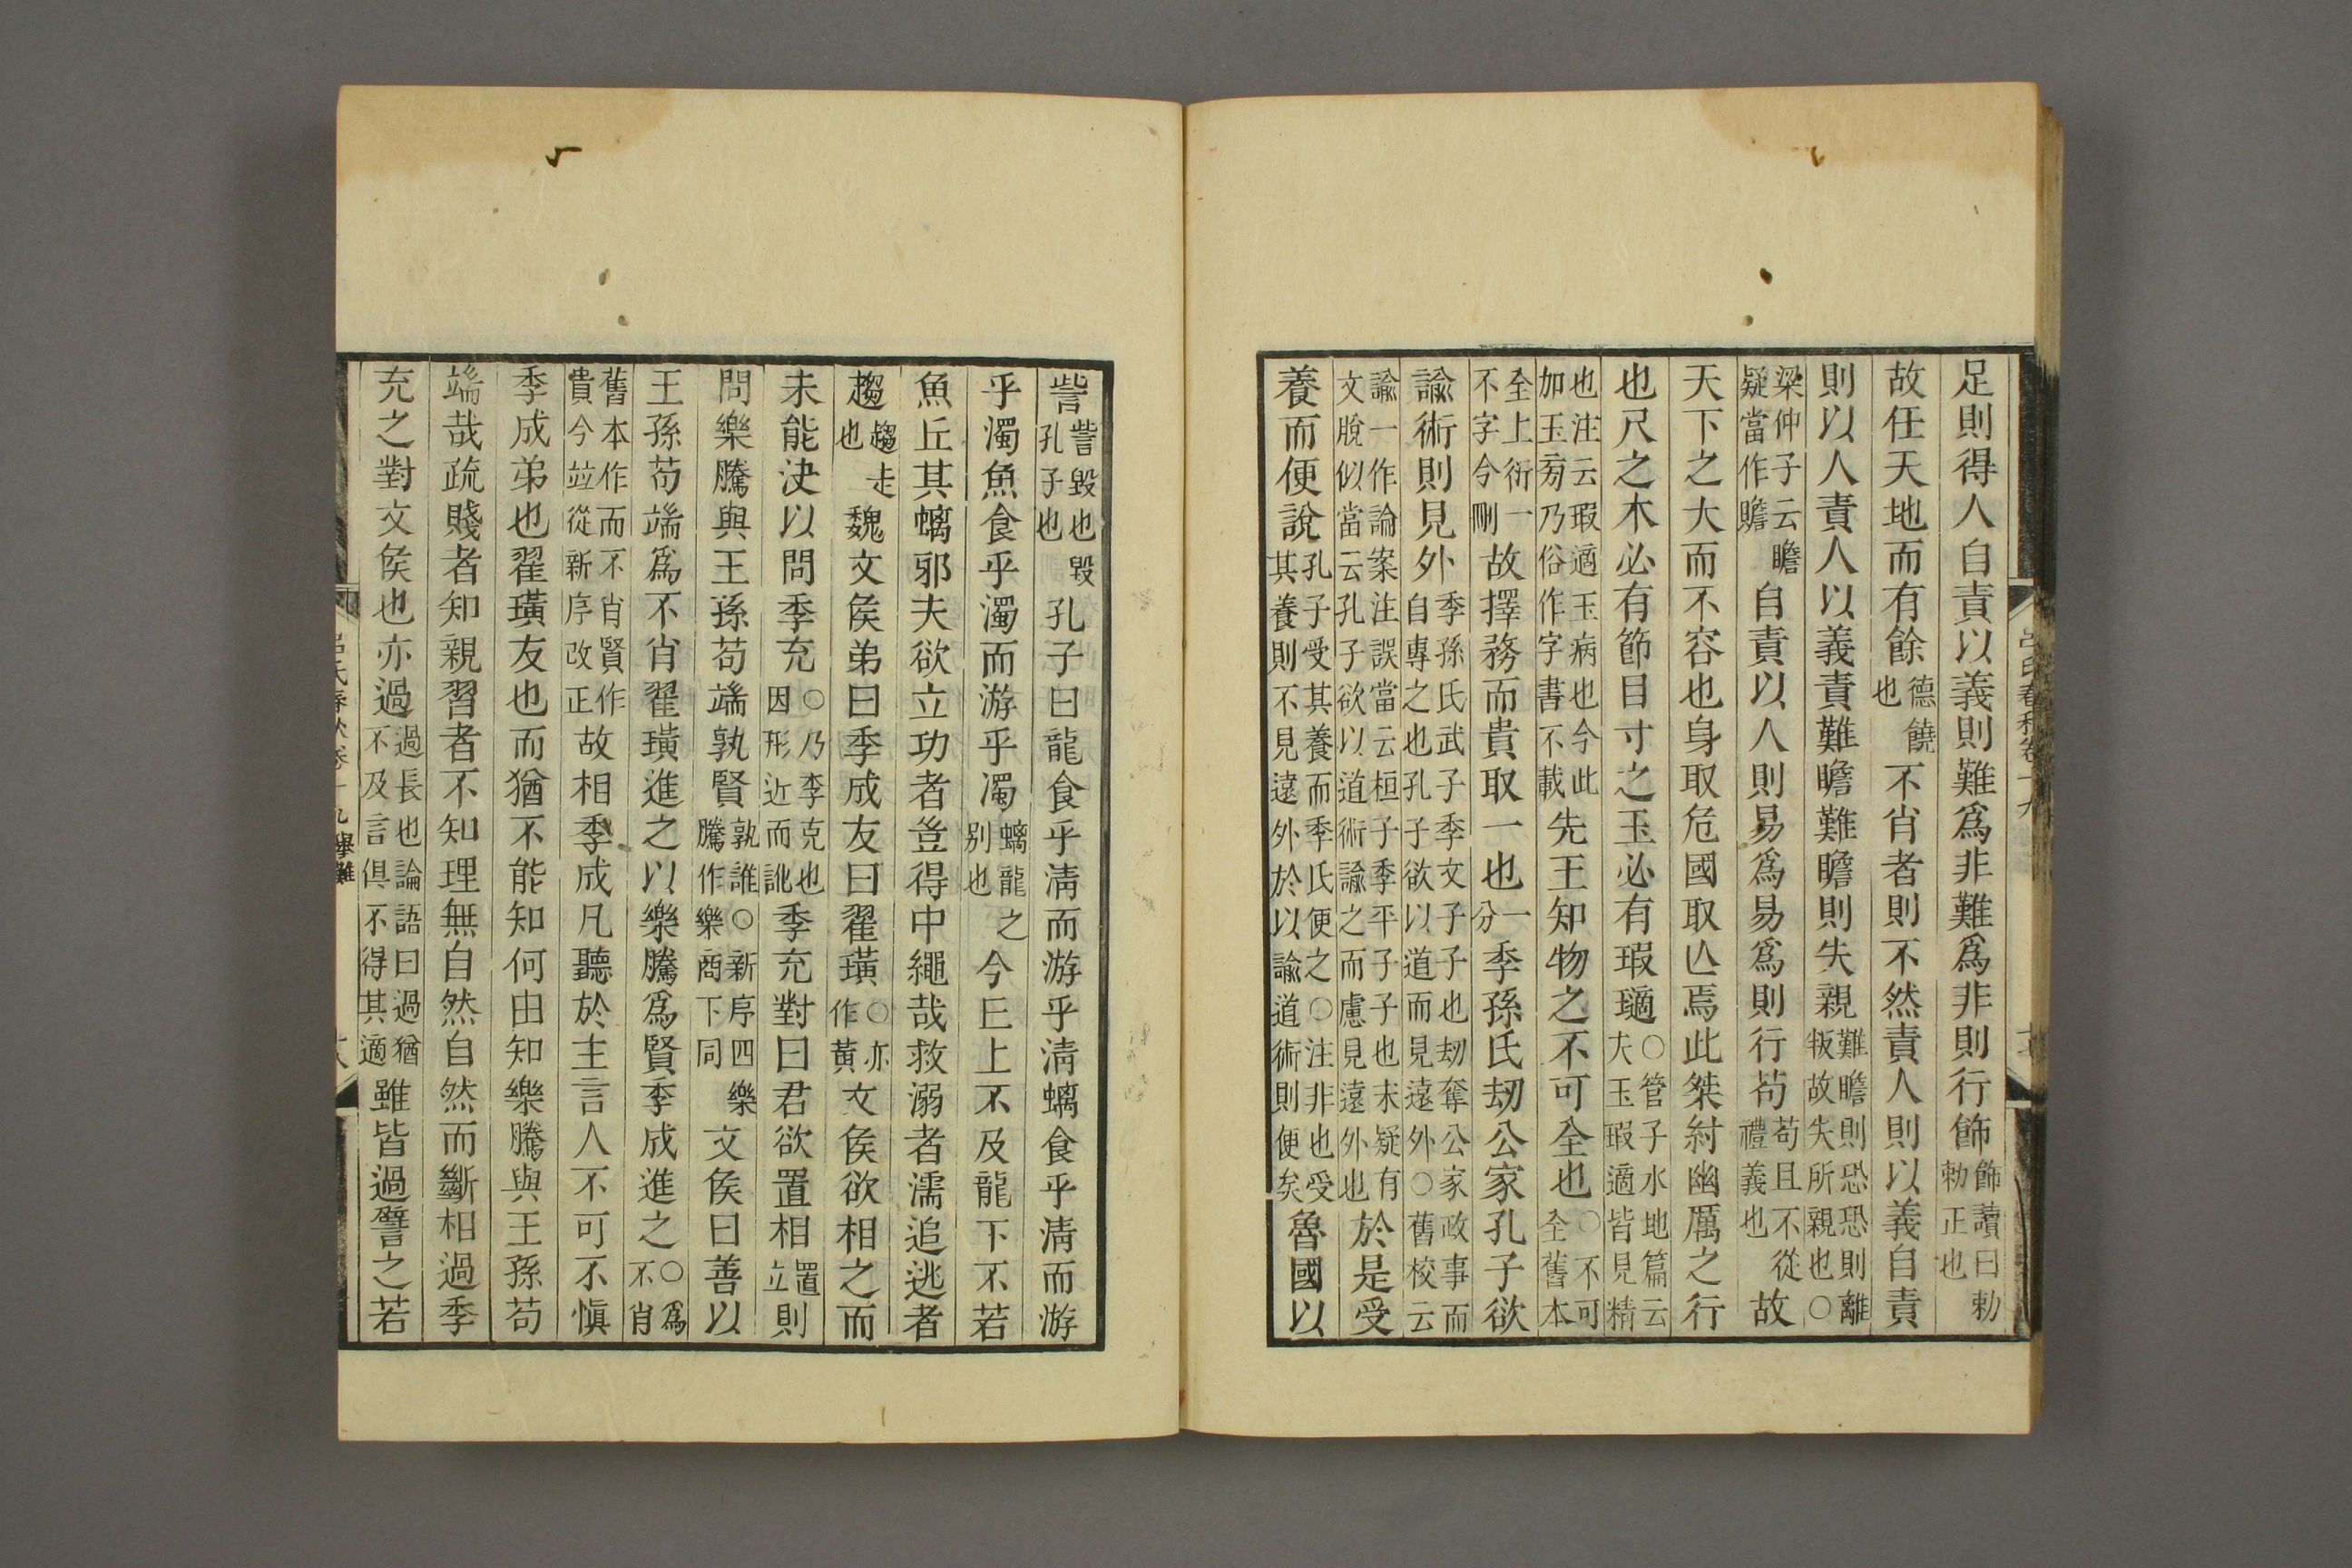 足則得人自責以義則難爲非難爲非則行飾飾讀曰勑勑正也
故任天地而有餘德饒也不肖者則不然責人則以義自責
則以人責人以義責難瞻難瞻則失親難瞻則恐恐則離叛故失所親也○
梁仲子云瞻疑當作贍自責以人則易爲易爲則行苟苟且不從禮義也故
天下之大而不容也身取危國取亾焉此桀紂幽厲之行
也尺之木必有節目寸之玉必有瑕瓋○管子水地篇云夫玉瑕適皆見精
也注云瑕適玉病也今此加玉旁乃俗作字書不載先王知物之不可全也○不可全舊本
全上衍一不字今刪故擇務而貴取一也一分季孫氏劫公家孔子欲
諭術則見外季孫氏武子季文子子也劫奪公家政事而自專之也孔子欲以道而見遠外○舊校云
諭一作論案注誤當云桓子季平子子也末疑有文脫似當云孔子欲以道術諭之而慮見遠外也於是受
養而便說孔子受其養而季氏便之○注非也受其養則不見遠外於以諭道術則便矣魯國以
訾訾毀也毀孔子也孔子曰龍食乎清而游乎清螭食乎清而游
乎濁魚食乎濁而游乎濁螭龍之別也今丘上不及龍下不若
魚丘其螭邪夫欲立功者豈得中繩哉救溺者濡追逃者
趨趨走也魏文侯弟曰季成友曰翟璜○亦作黃文侯欲相之而
未能決以問季充○乃李克也因形近而訛季充對曰君欲置相置立則
問樂騰與王孫苟端孰賢孰誰○新序四樂騰作樂商下同文侯曰善以
王孫苟端爲不肖翟璜進之以樂騰爲賢季成進之○爲不肖
舊本作而不肖賢作貴今竝從新序改正故相季成凡聽於主言人不可不愼
季成弟也翟璜友也而猶不能知何由知樂騰與王孫苟
端哉疏賤者知親習者不知理無自然自然而斷相過季
充之對文侯也亦過過長也論語曰過猶不及言俱不得其適雖皆過譬之若
呂氏春秋卷十九 舉難